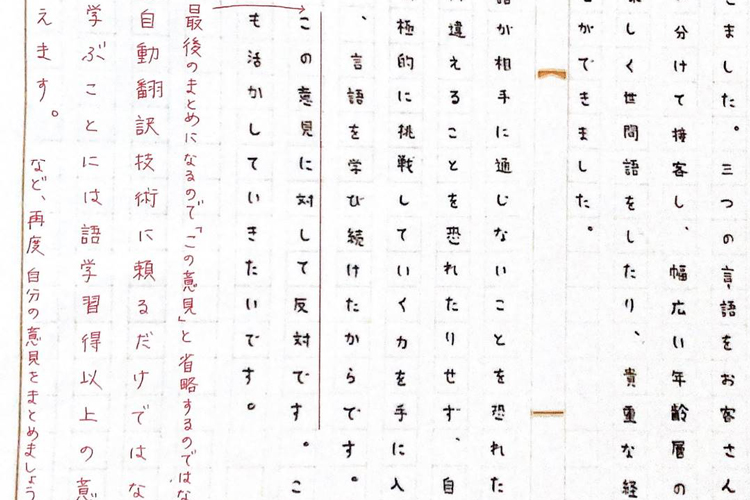 ました。三つの言語をお客さん
分けて接客し、幅広い年齢層の
しく世間語をしたり、貴重な経
ができました。
が相手に通じないことを恐れた
違えることを恐れたりせず、自
極的に挑戦していく力を手に入
、言語を学び続けたからです。
この意見に対して反対です。こ
も活かしていきたいです。
最後のまとめになるので「この意見」と省略するのではな
自動翻訳技術に頼るだけではな
学ぶことには語学習得以上の意
えます。
など、再度自分の意見をまとめましょう